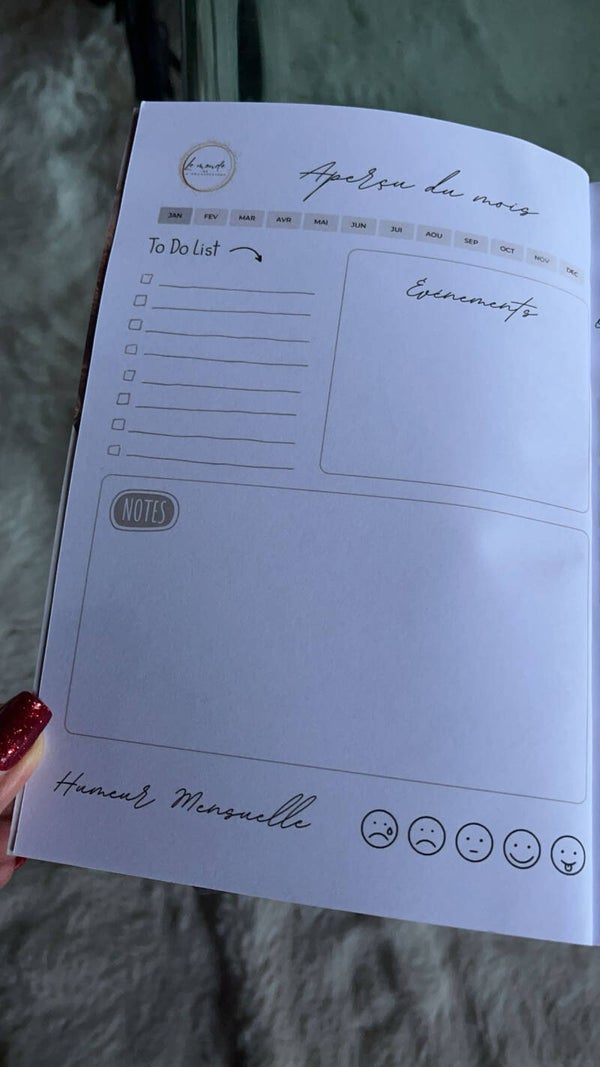 Le monde
Aperçu du mois
JAN FEV MAR AVR MAI JUN JUI AOU SEP OCT NOV DEC
To Do List
Événements
NOTES
Humeur Mensuelle